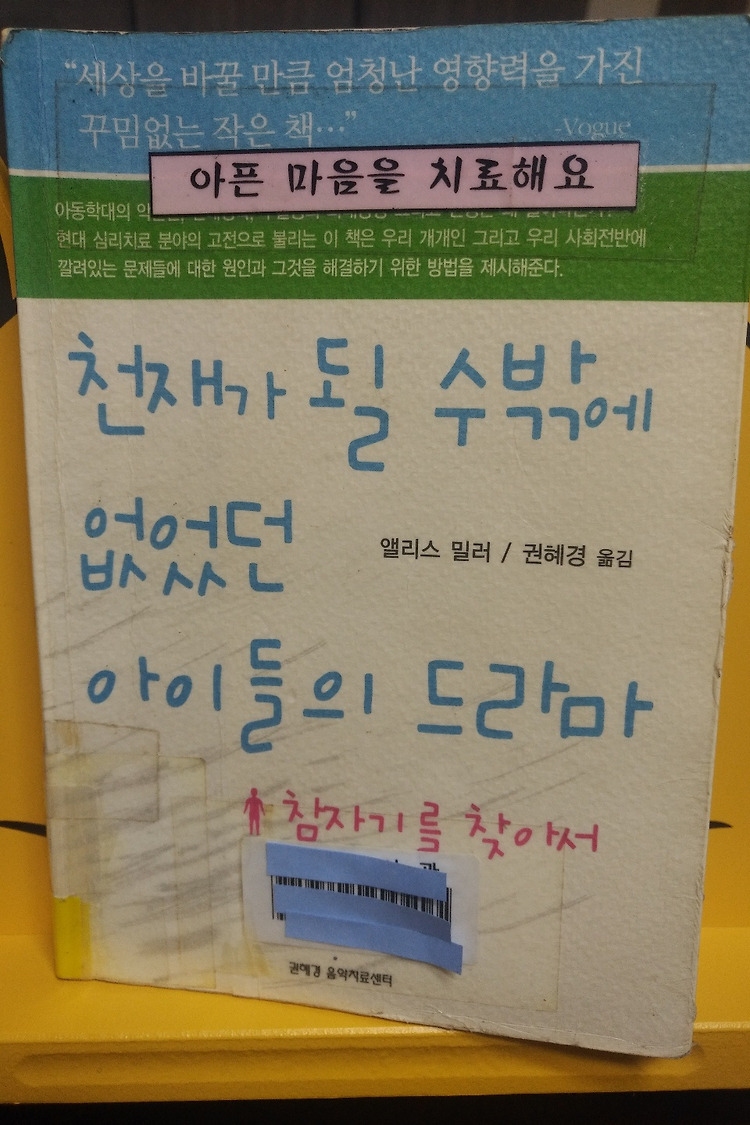 “세상을 바꿀 만큼 엄청난 영향력을 가진
꾸밈없는 작은 책…”
-Vogue
아픈 마음을 치료해요
아동학대의
현대 심리치료 분야의 고전으로 불리는 이 책은 우리 개개인 그리고 우리 사회전반에
깔려있는 문제들에 대한 원인과 그것을 해결하기 위한 방법을 제시해준다.
천재가 될 수밖에
없었던
앨리스 밀러 / 권혜경 옮김
아이들의 드라마
참자기를 찾아서
권혜경 음악치료센터